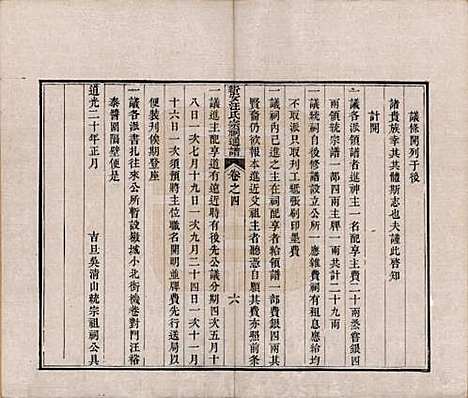 議條開列于後
諸貴族幸其共體斯志也夫謹此啓知
計開
一議各派領譜者進神主一名配享主費二十兩烝嘗銀四
兩領統宗譜一部四兩主牌一兩共計二十九兩
一議統祠自後修譜設立公所一應雜費祠有租息應給均
不取派只取刋工紙張刷印墨費
一議祠內已進之主在祠配享者給領譜一部費銀四兩其
賢裔仍欲報本進近文祖主者聽憑自願其費亦照前條
新安汪氏宗祠通譜
卷之四
六
一議進主配享道有遠近聘有後先公議分期四次五月十
八日一次七月十九日一次九月二十四日一次十一月
十六日一次須預將主位職名開明並牌費先行送局以
便裝刋候期登座
一議各派書扎往來公所暫設巖城小北街機巷對門汪裕
泰醬園隔壁便是
道光二十年正月
吉旦吳清山統宗祖祠公具